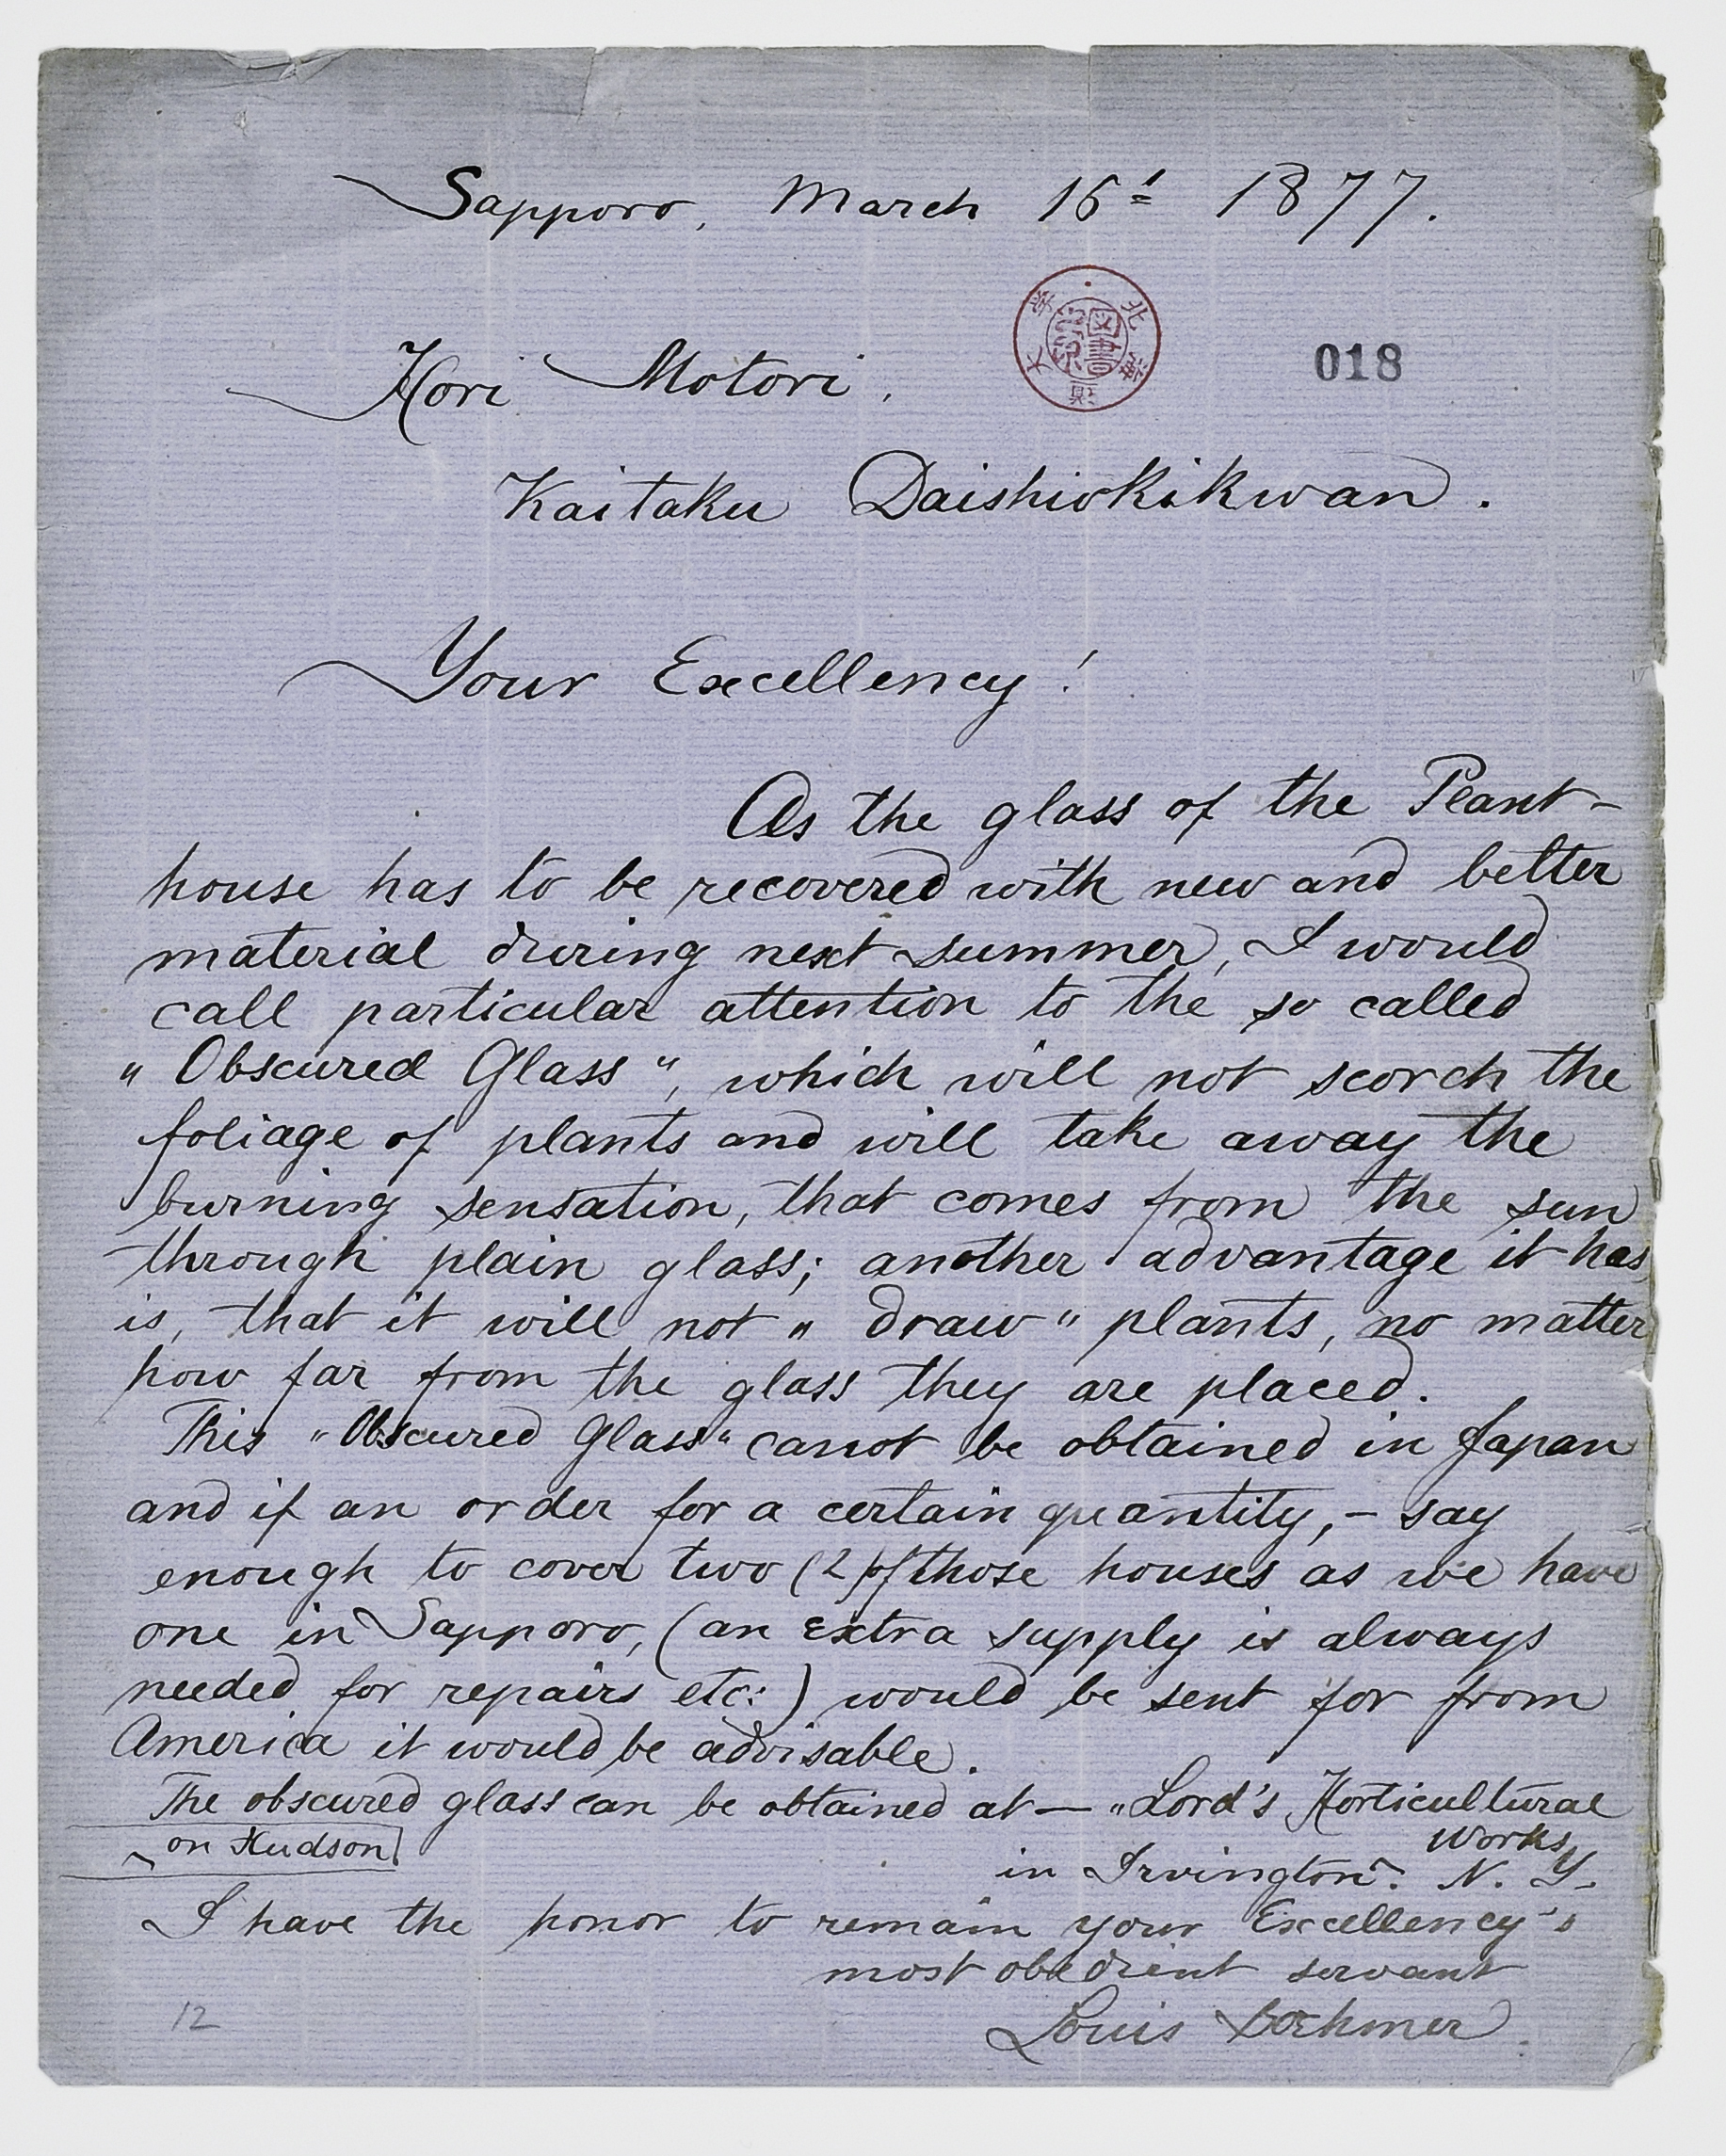 Sapporo, March 16th 1877.
018
Hori Motori,
Kaitaku Daishiokikwan.
Your Excellency!
As the glass of the Plant-
house has to be recovered with new and better
material during next summer, I would
call particular attention to the so called
„Obscured Glass“, which will not scorch the
foliage of plants and will take away the
burning sensation, that comes from the sun
through plain glass; another advantage it has
is, that it will not „draw“ plants, no matter
how far from the glass they are placed.
This „Obscured Glass“ canot be obtained in Japan
and if an order for a certain quantity, – say
enough to cover two (2) of those houses as we have
one in Sapporo, (an extra supply is always
needed for repairs etc:) would be sent for from
America it would be advisable.
The obscured glass can be obtained at — „Lord's Horticultural
Works,
on Hudson
in Irvington. N. Y.
I have the honor to remain your Excellency's
most obedient servant
Louis Boehmer.
12